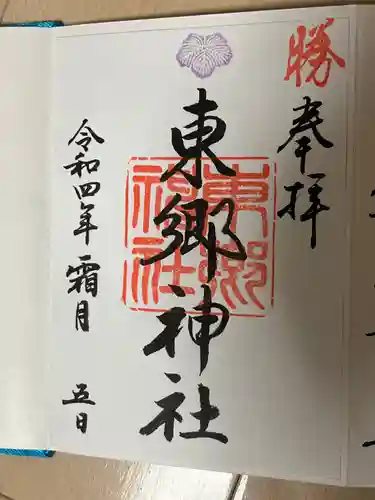 勝
奉拝
東郷神社
東郷
神社
令和四年霜月五日